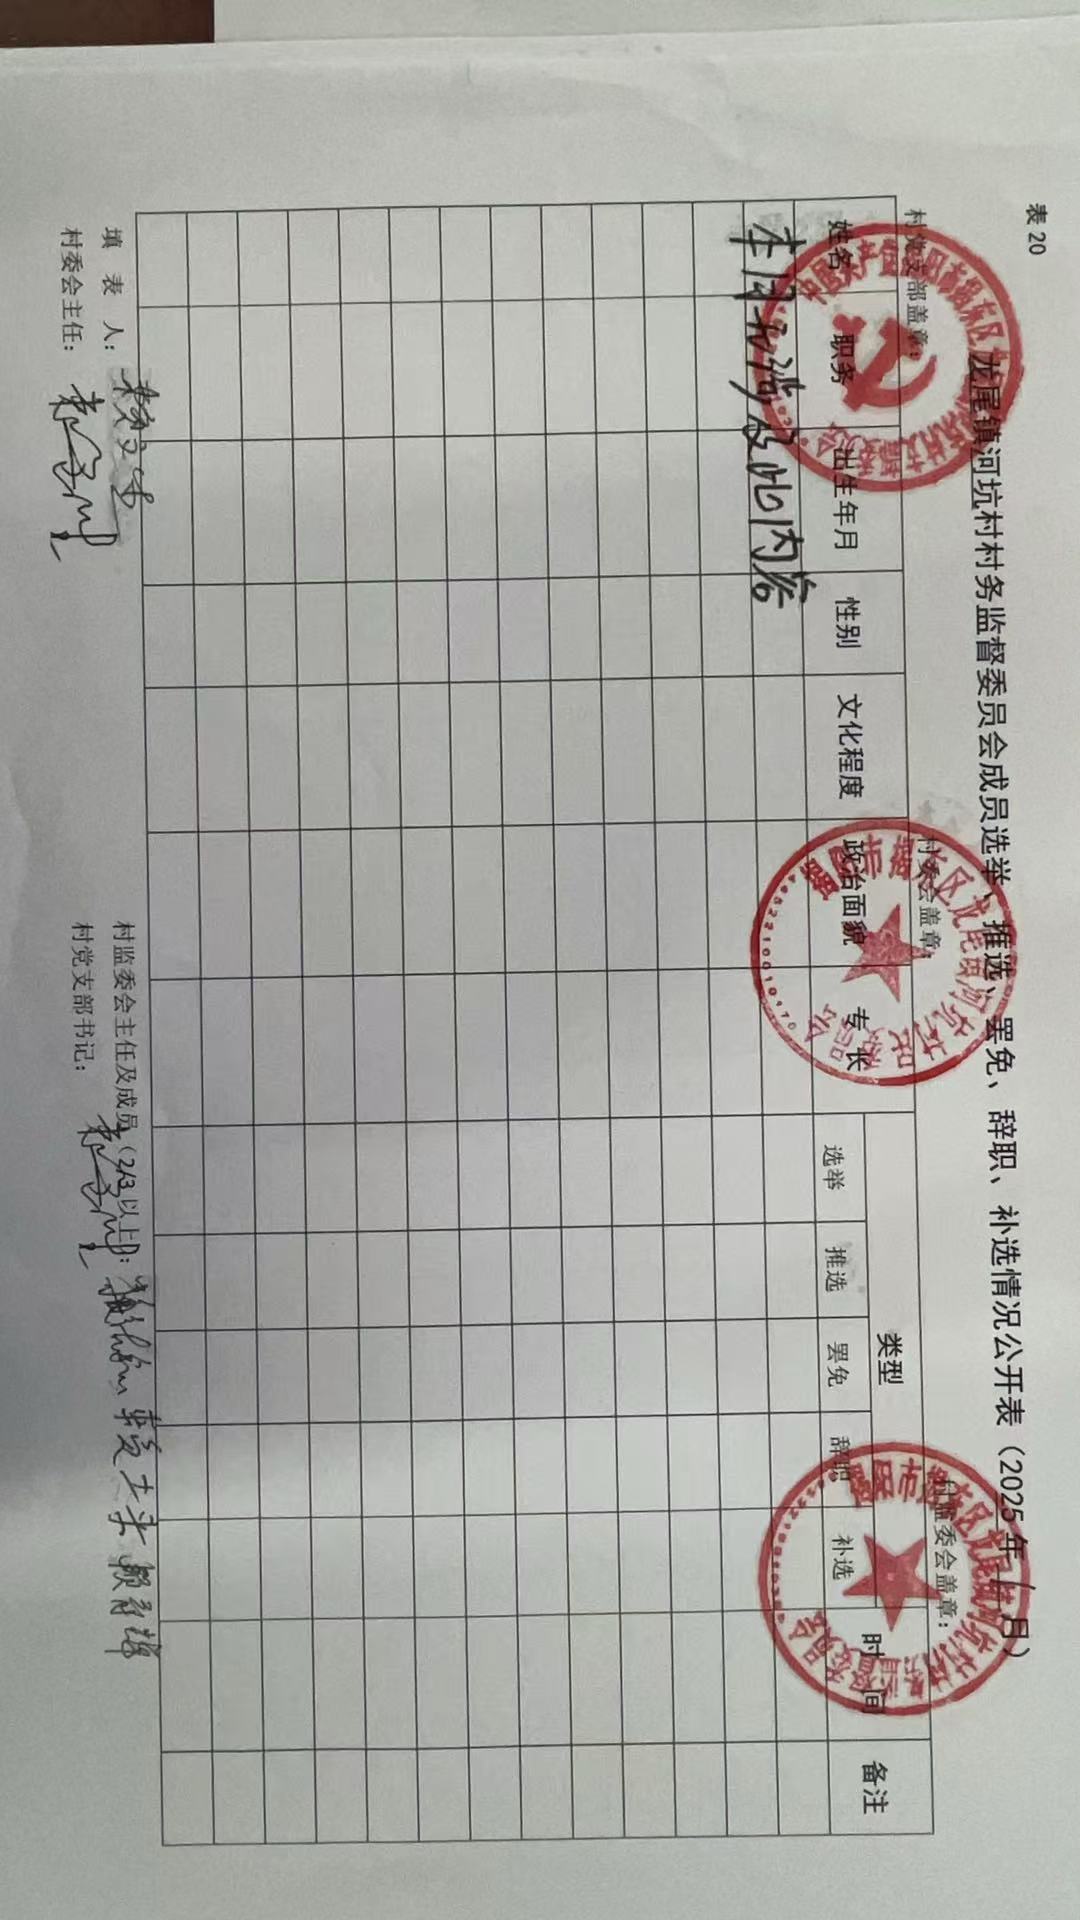 表 20
龙尾镇河坑村村务监督委员会成员选举、推选、罢免、辞职、补选情况公开表（2025 年 11 月）
村党支部盖章： 村委会盖章： 村监委会盖章：
姓名 职务 出生年月 性别 文化程度 政治面貌 专 长 类型 时 间 备注
选举 推选 罢免 辞职 补选
本月无涉及此内容
填 表 人： 村监委会主任及成员（2/3以上）：
村委会主任： 村党支部书记：